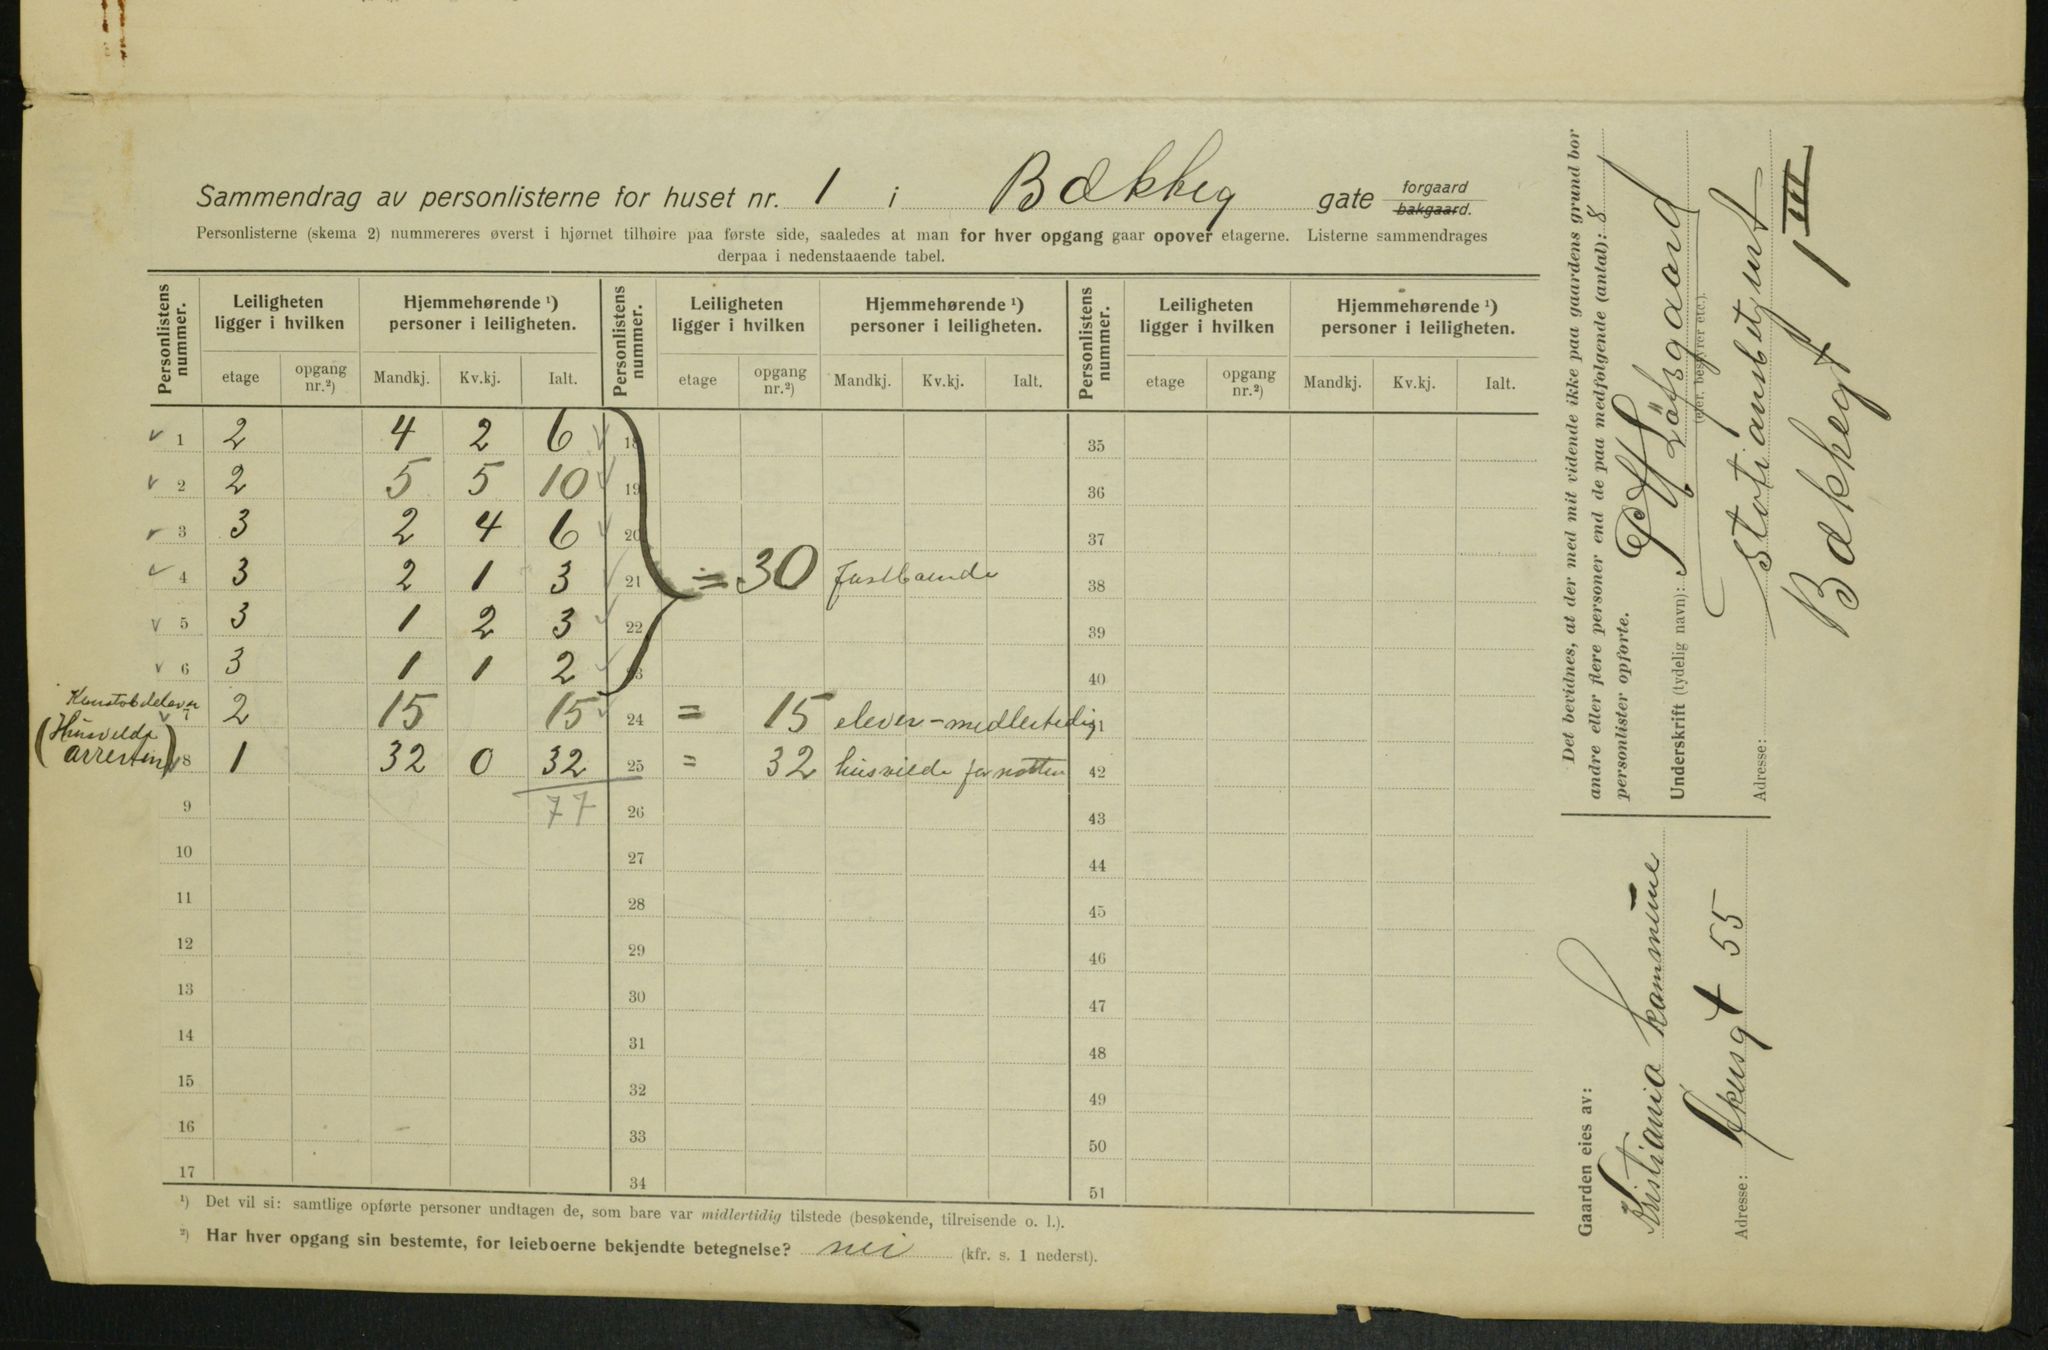 Sammendrag av personlisterne for huset nr. 1 i Bækkeg gate forgaard bakgaard.
Personlisterne (skema 2) nummereres øverst i hjørnet tilhøire paa første side, saaledes at man for hver opgang gaar opover etagerne. Listerne sammendrages
derpaa i nedenstaaende tabel.
Personlistens nummer. Leiligheten ligger i hvilken Hjemmehørende ¹) personer i leiligheten. Personlistens nummer. Leiligheten ligger i hvilken Hjemmehørende ¹) personer i leiligheten. Personlistens nummer. Leiligheten ligger i hvilken Hjemmehørende ¹) personer i leiligheten.
etage opgang nr.²) Mandkj. Kv.kj. Ialt. etage opgang nr.²) Mandkj. Kv.kj. Ialt. etage opgang nr.²) Mandkj. Kv.kj. Ialt.
1 2 4 2 6 18 35
2 2 5 5 10 19 36
3 3 2 4 6 20 37
4 3 2 1 3 21 = 30 fastboende 38
5 3 1 2 3 22 39
6 3 1 1 2 23 40
7 2 15 15 24 = 15 elever - medlertedig 41
(Husvilde
arresten) 8 1 32 0 32 25 = 32 husvilde for natten 42
9 77 26 43
10 27 44
11 28 45
12 29 46
13 30 47
14 31 48
15 32 49
16 33 50
17 34 51
¹) Det vil si: samtlige opførte personer undtagen de, som bare var midlertidig tilstede (besøkende, tilreisende o. l.).
²) Har hver opgang sin bestemte, for leieboerne bekjendte betegnelse? nei (kfr. s. 1 nederst).
Det bevidnes, at der med mit vidende ikke paa gaardens grund bor
andre eller flere personer end de paa medfølgende (antal): 8
personlister opførte.
Underskrift (tydelig navn):
(eier, bestyrer etc.).
Adresse:
Bækkegt 1 III
Gaarden eies av:
Kristiania kommune
Adresse: Akersgt 55